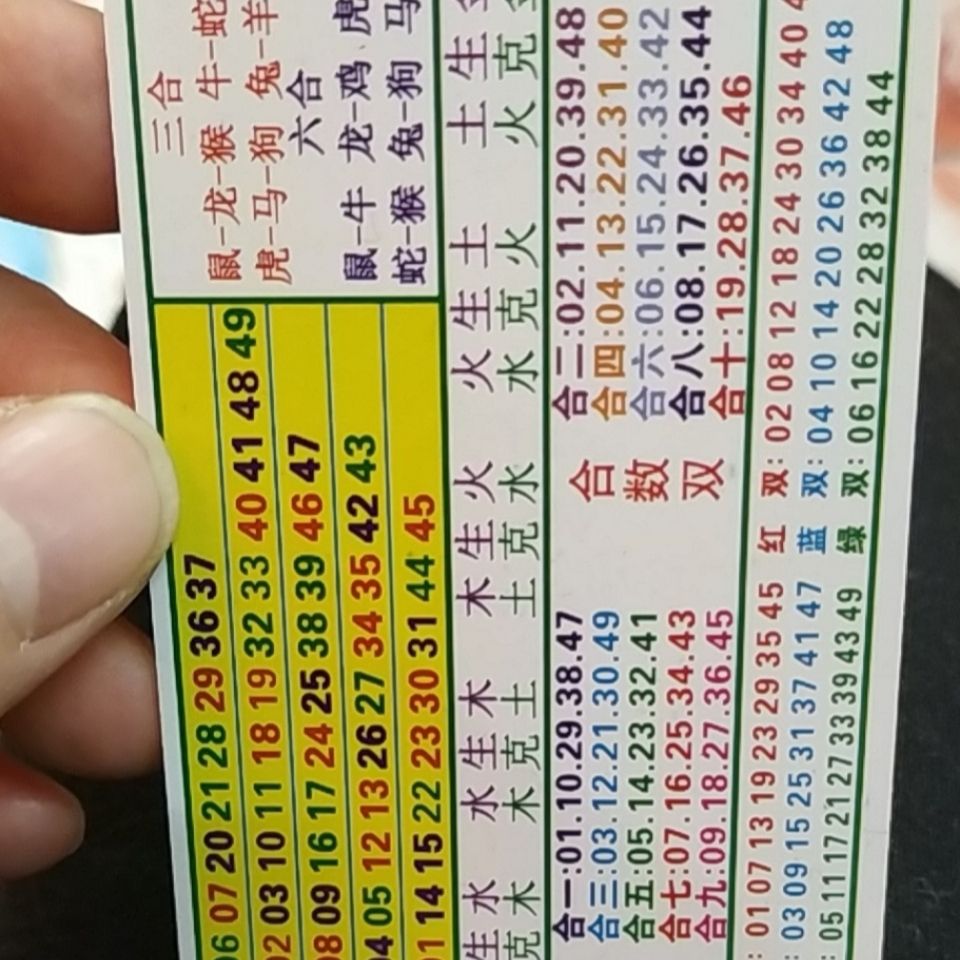 06 07 20 21 28 29 36 37
02 03 10 11 18 19 32 33 40 41 48 49
08 09 16 17 24 25 38 39 46 47
04 05 12 13 26 27 34 35 42 43
01 14 15 22 23 30 31 44 45
三合
鼠-龙-猴 牛-蛇
虎-马-狗 兔-羊
六合
鼠-牛 龙-鸡 虎
蛇-猴 兔-狗 马
生水 水生木 木生火 火生土 土生金
克木 木克土 土克水 水克火 火克金
合一:01.10.29.38.47
合三:03.12.21.30.49
合五:05.14.23.32.41
合七:07.16.25.34.43
合九:09.18.27.36.45
合数双
合二:02.11.20.39.48
合四:04.13.22.31.40
合六:06.15.24.33.42
合八:08.17.26.35.44
合十:19.28.37.46
: 01 07 13 19 23 29 35 45 红双: 02 08 12 18 24 30 34 40
: 03 09 15 25 31 37 41 47 蓝双: 04 10 14 20 26 36 42 48
: 05 11 17 21 27 33 39 43 49 绿双: 06 16 22 28 32 38 44